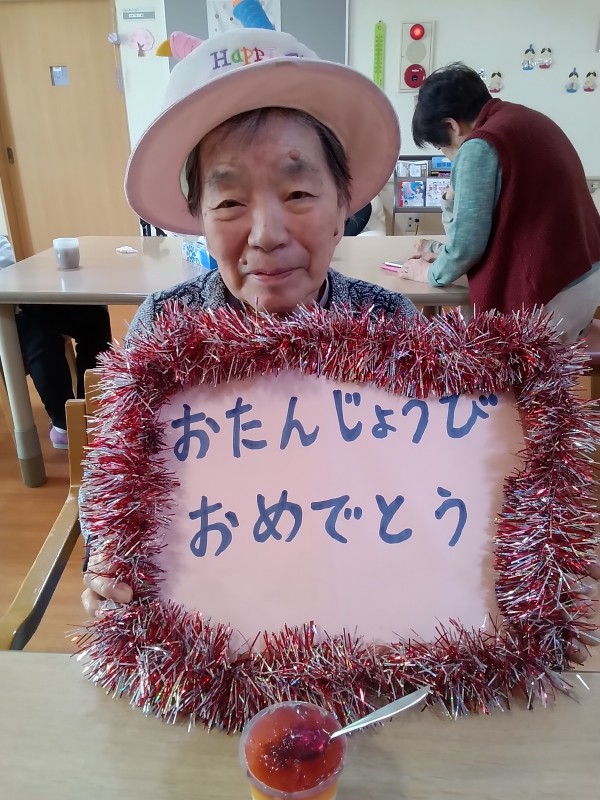 Happy
おたんじょうび
おめでとう